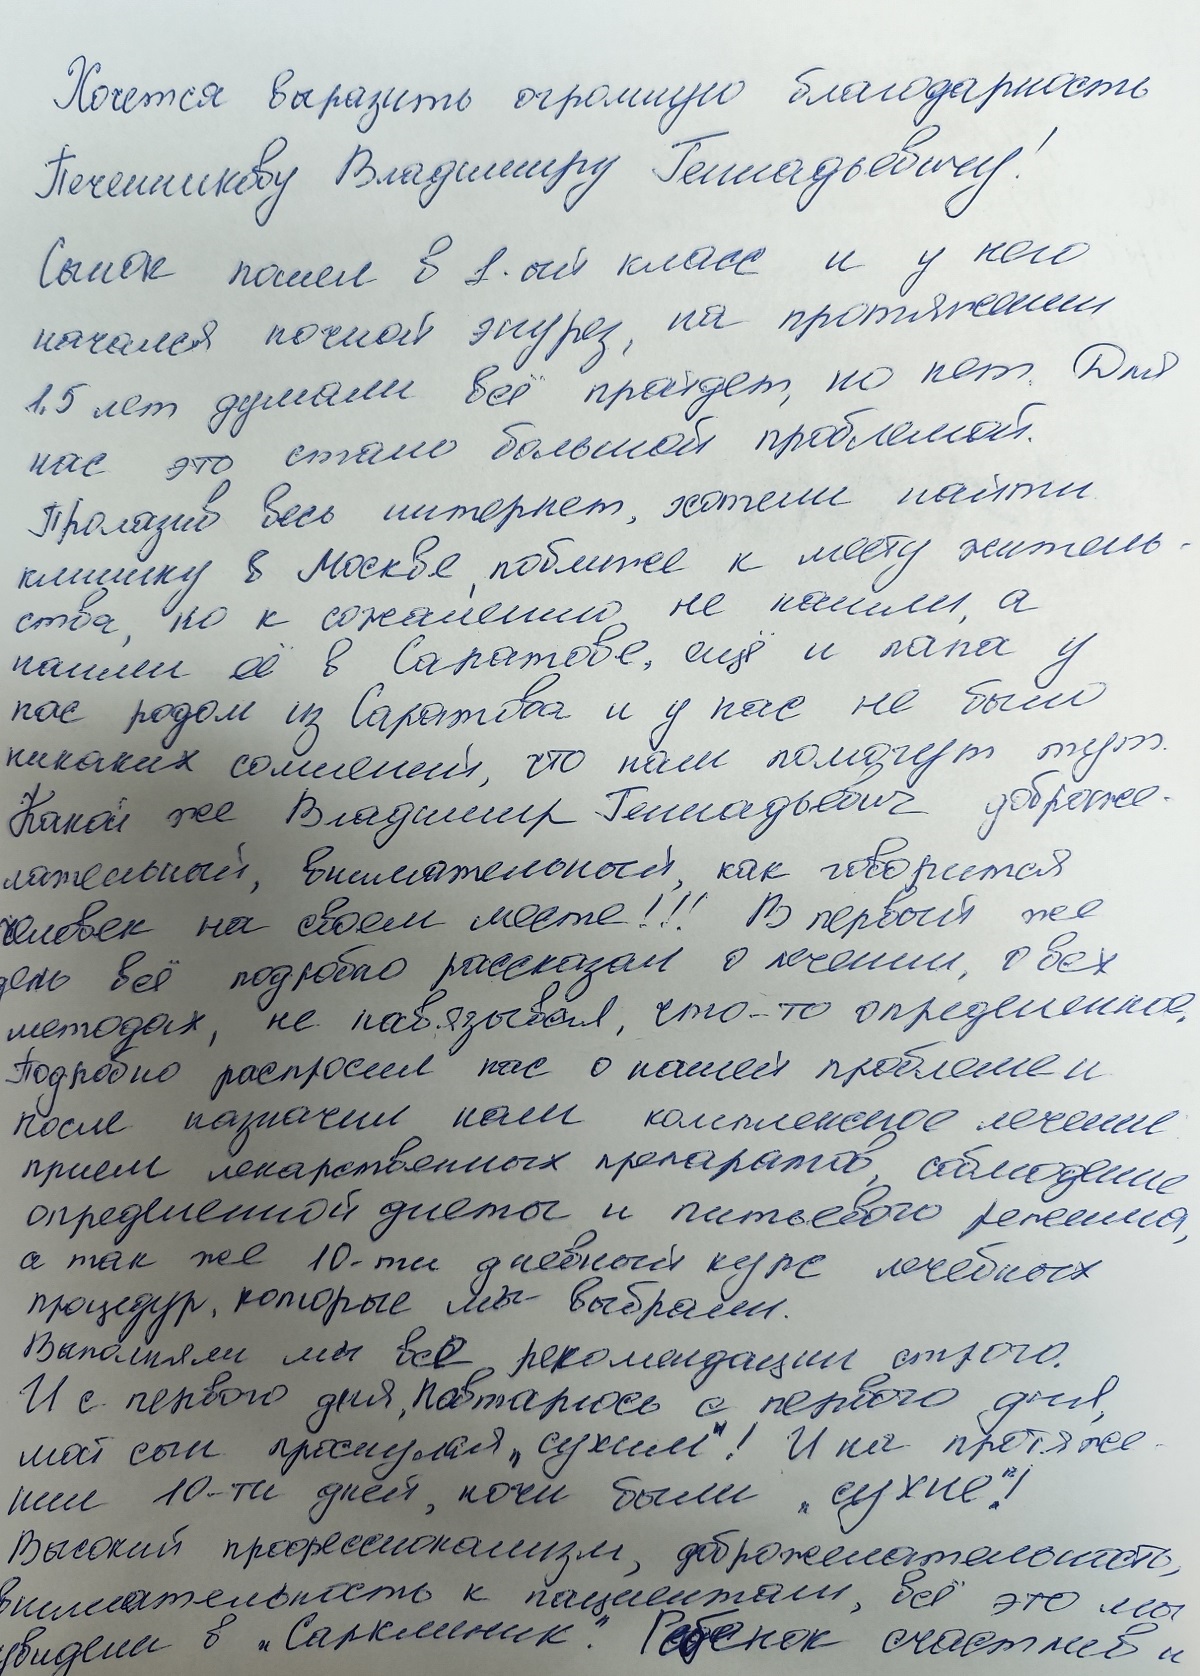 Хочется выразить огромную благодарность
Печенникову Владимиру Геннадьевичу!
Сынок пошел в 1-ый класс и у него
начался ночной энурез, на протяжении
1,5 лет думали всё пройдет, но нет. Для
нас это стало большой проблемой.
Пролазив весь интернет, хотели найти
клинику в Москве, поближе к месту житель-
ства, но к сожалению не нашли, а
нашли её в Саратове, ещё и папа у
нас родом из Саратова и у нас не было
никаких сомнений, что нам помогут тут.
Какой же Владимир Геннадьевич доброже-
лательный, внимательный, как говорится
человек на своем месте!!! В первый же
день всё подробно рассказал о лечении, о всех
методах, не навязывая, что-то определенное.
Подробно расспросил нас о нашей проблеме и
после назначил нам комплексное лечение
прием лекарственных препаратов, соблюдение
определенной диеты и питьевого режима,
а так же 10-ти дневный курс лечебных
процедур, которые мы выбрали.
Выполняли мы все рекомендации строго.
И с первого дня, повторюсь с первого дня,
мой сын проснулся „сухим"! И на протяже-
нии 10-ти дней, ночи были „сухие"!
Высокий профессионализм, доброжелательность,
внимательность к пациентам, всё это мы
увидели в „Сарклиник". Ребенок счастлив и